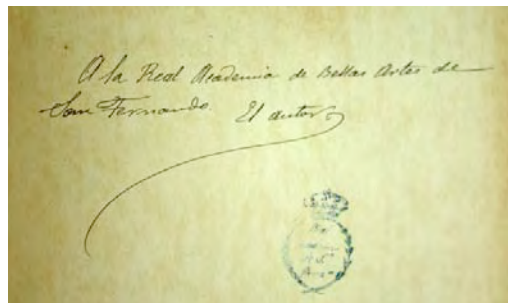 A la Real Academia de Bellas Artes de
San Fernando El autor